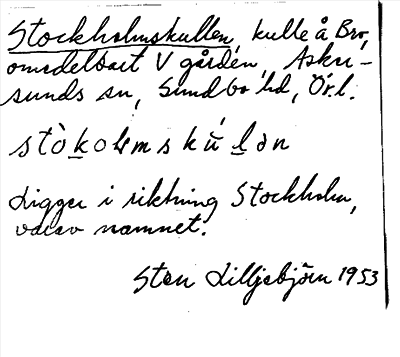 Stockholmskullen, kulle å Bro,
omedelbart V gården, Asker-
sunds sn, Sundbo hd, Ör.l.
stòkolmskúlən
Ligger i riktning Stockholm,
varav namnet.
Sten Lilljebjörn 1953